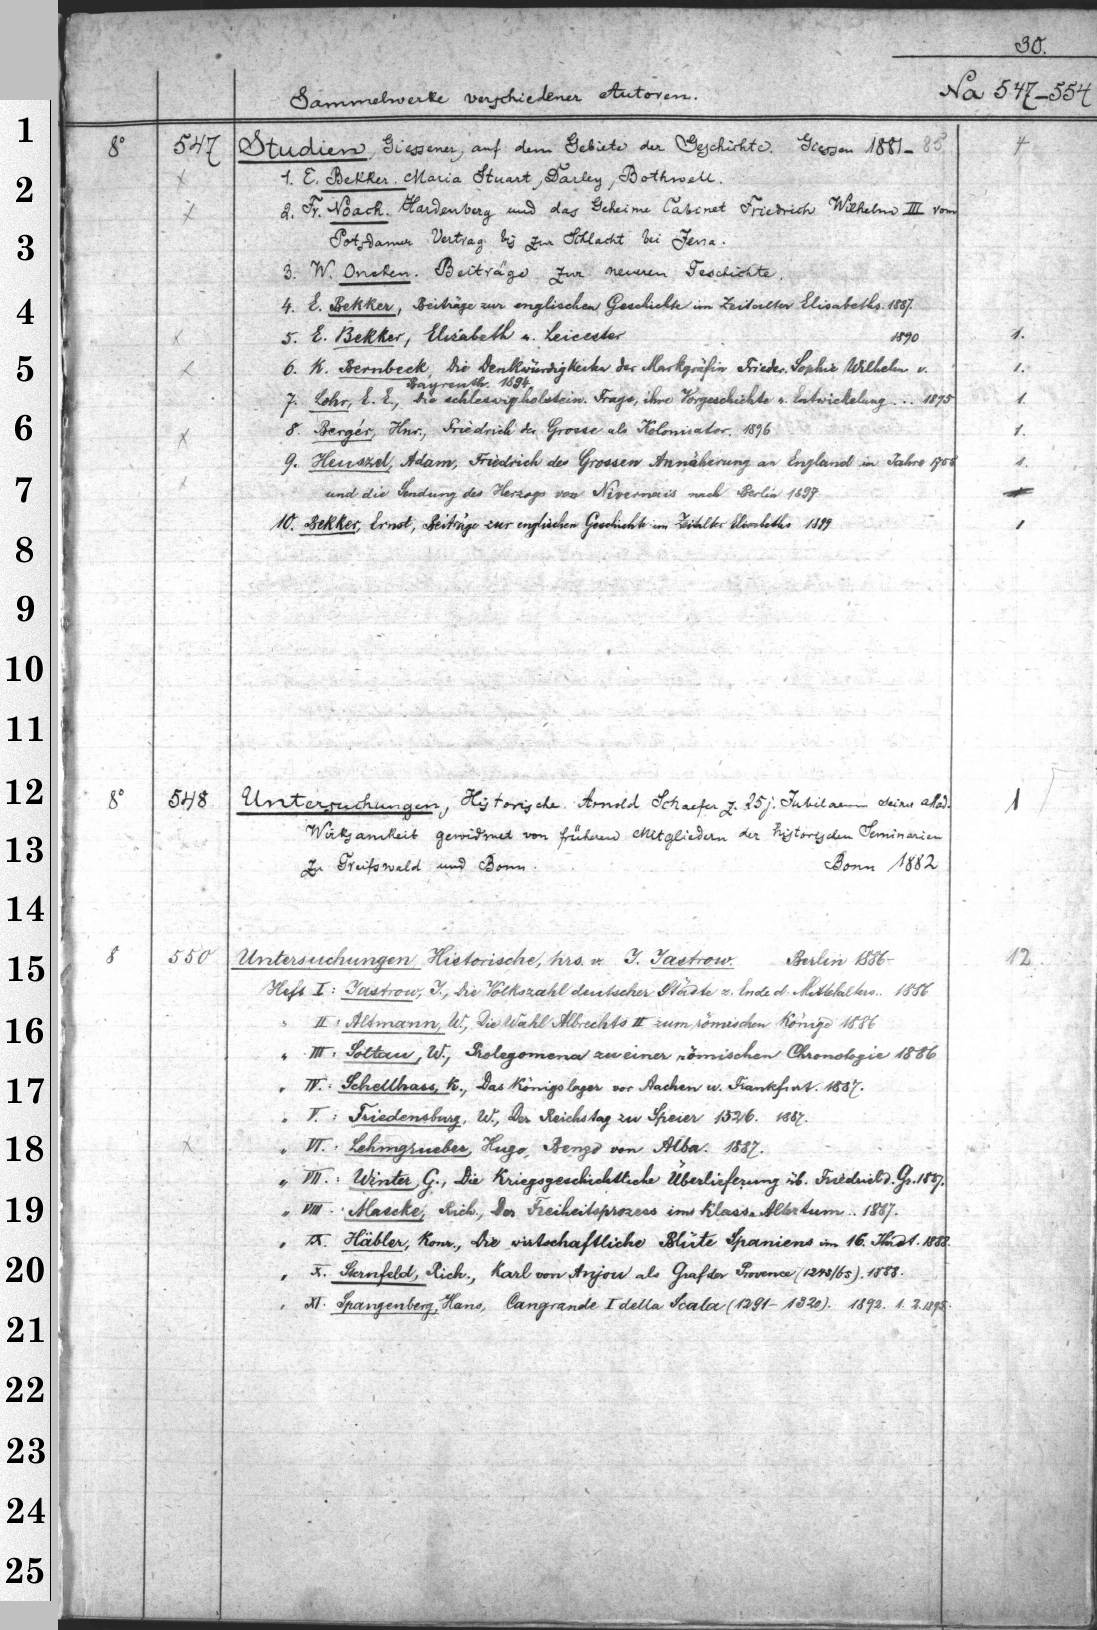 30.
Sammelwerke verschiedener Autoren. Na 547-554
1
8° 547 Studien, Giessener, auf dem Gebiete der Geschichte. Giessen 1881-85 4
2
x 1. E. Bekker. Maria Stuart, Darley, Bothwell.
x 2. Fr. Noack. Hardenberg und das Geheime Cabinet Friedrich Wilhelms III vom
3
Potsdamer Vertrag bis zur Schlacht bei Jena.
3. W. Oncken. Beiträge zur neueren Geschichte.
4
4. E. Bekker, Beiträge zur englischen Geschichte im Zeitalter Elisabeths. 1887.
x 5. E. Bekker, Elisabeth u. Leicester 1890 1.
5
x 6. K. Bernbeck, Die Denkwürdigkeiten der Markgräfin Frieder. Sophie Wilhelm v. 1.
Bayreuth. 1894.
7. Lohr, E. E., Die schleswigholstein. Frage, ihre Vorgeschichte u. Entwickelung ... 1895 1.
6
x 8. Bergér, Hnr., Friedrich der Grosse als Kolonisator. 1896 1.
9. Heuszel, Adam, Friedrich des Grossen Annäherung an England im Jahre 1756 1.
7
x und die Sendung des Herzogs von Nivernais nach Berlin 1897
10. Bekker, Ernst, Beiträge zur englischen Geschichte im Zeitalter Elisabeths 1899 1
8
9
10
11
12
8° 548 Untersuchungen, Historische. Arnold Schaefer z. 25j. Jubilaeum seiner akad. 1
Wirksamkeit gewidmet von früheren Mitgliedern der historischen Seminarien
13
zu Greifswald und Bonn. Bonn 1882
14
15
8 550 Untersuchungen Historische, hrs. v. J. Jastrow. Berlin 1886- 12
Heft I: Jastrow, J., Die Volkszahl deutscher Städte z. Ende d. Mittelalters.. 1886
16
" II: Altmann, W., Die Wahl Albrechts II zum römischen Könige 1886
" III: Soltau, W., Prolegomena zu einer römischen Chronologie 1886
17
" IV.: Schellhass, K., Das Königslager vor Aachen u. Frankfurt. 1887.
" V.: Friedensburg, W., Der Reichstag zu Speier 1526. 1887.
18
x " VI. Lehmgrueber, Hugo, Benzo von Alba. 1887.
" VII.: Winter, G., Die Kriegsgeschichtliche Überlieferung üb. Friedrich d. Gr. 1887.
19
" VIII. Maschke, Rich., Der Freiheitsprozess im klass. Altertum.. 1887.
" IX. Häbler, Konr., Die wirtschaftliche Blüte Spaniens im 16. Jhrdt. 1888.
20
" X. Sternfeld, Rich., Karl von Anjou als Graf der Provence (1245/65). 1888.
" XI. Spangenberg, Hans, Cangrande I della Scala (1291-1320). 1892. 1. 2. 1895.
21
22
23
24
25